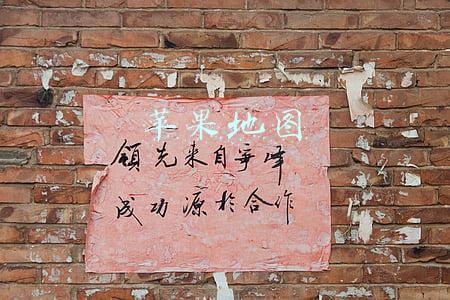 苹果地图
领先来自争峰
成功源於合作